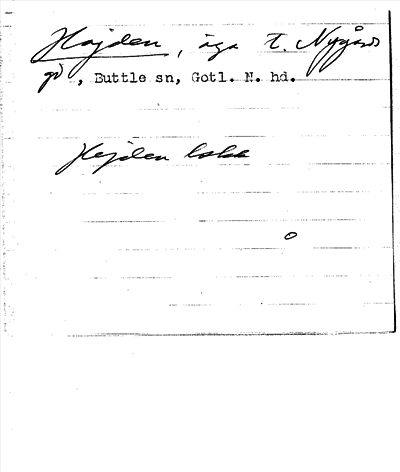 Hajden, äga t. Nygårds
gd, Buttle sn, Gotl. N. hd.
Hejden